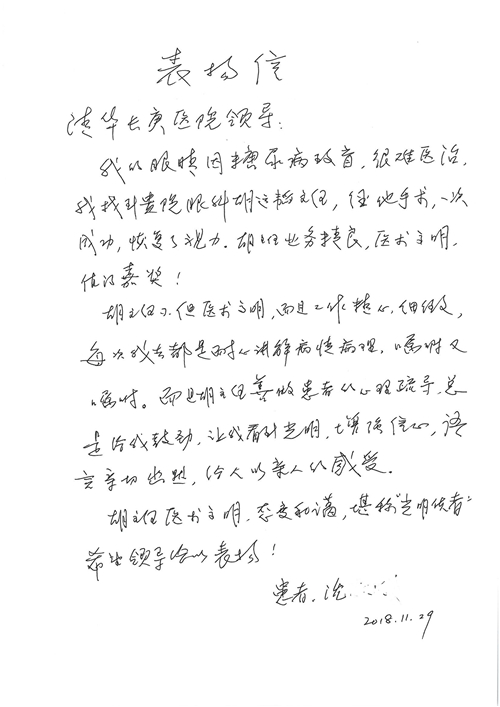 表扬信
清华长庚医院领导：
我的眼睛因糖尿病致盲，很难医治，
我找到贵院眼科胡运韬主任，经他手术，一次
成功，恢复了视力。胡主任业务精良，医术高明，
值得嘉奖！
胡主任不但医术高明，而且工作精心、细致，
每次我去都是耐心讲解病情病理，嘱咐又
嘱咐。而且胡主任善做患者的心理疏导，总
是给我鼓励，让我看到光明，增强信心，语
言亲切幽默，给人以亲人的感受。
胡主任医术高明，态度和蔼，堪称"光明使者"
希望领导给以表扬！
患者：沈
2018.11.29